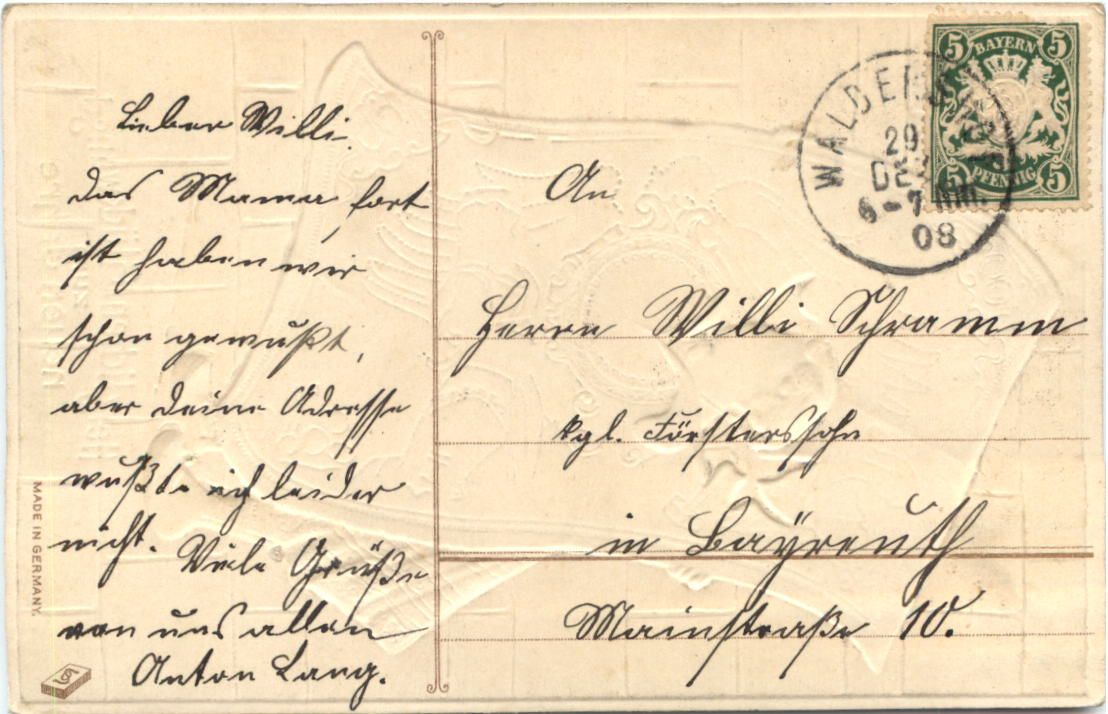 Lieber Willi.
das Mama fort
ist haben wir
schon gewußt,
aber deine Adresse
wußte ich leider
nicht. Viele Grüße
von uns allen
Anton Lang.
MADE IN GERMANY.
5 BAYERN 5
5 PFENNIG 5
29.
DEZ
6-7 Nm.
08
An
Herrn Willi Schramm
kgl. Försterssohn
in Bayreuth
Mainstraße 10.